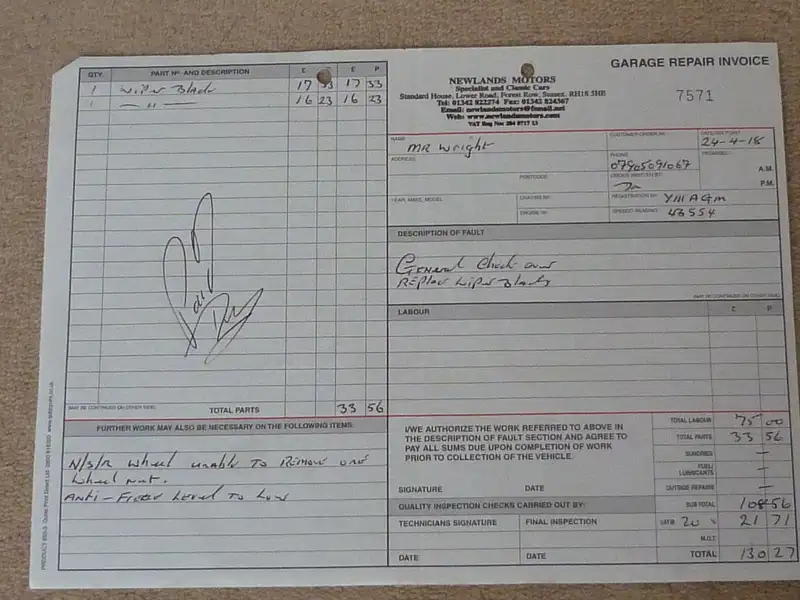 GARAGE REPAIR INVOICE
7571
NEWLANDS MOTORS
Specialist and Classic Cars
Standard House, Lower Road, Forest Row, Sussex. RH18 5HE
Tel: 01342 822274 Fax: 01342 824367
Email: newlandsmotors@fsmail.net
Web: www.newlandsmotors.com
VAT Reg Nov
QTY. PART Nº AND DESCRIPTION £ P £ P
1 Wiper Blade 17 33 17 33
1 — " — 16 23 16 23
Paid
MAY BE CONTINUED ON OTHER SIDE TOTAL PARTS 33 56
NAME MR Wright
CUSTOMER ORDER No.
24-4-18
ADDRESS
PHONE 07905091067
PROMISED A.M.
POSTCODE
P.M.
YEAR, MAKE, MODEL
CHASSIS Nº
REGISTRATION Nº Y111 AGM
ENGINE Nº
SPEEDO READING 43554
DESCRIPTION OF FAULT
General Check over
Replace Wiper Blades
MAY BE CONTINUED ON OTHER SIDE
LABOUR £ P
FURTHER WORK MAY ALSO BE NECESSARY ON THE FOLLOWING ITEMS:
N/S/R wheel unable to Remove one
Wheel nut.
Anti-Freeze Level to Low
I/WE AUTHORIZE THE WORK REFERRED TO ABOVE IN
THE DESCRIPTION OF FAULT SECTION AND AGREE TO
PAY ALL SUMS DUE UPON COMPLETION OF WORK
PRIOR TO COLLECTION OF THE VEHICLE.
SIGNATURE DATE
QUALITY INSPECTION CHECKS CARRIED OUT BY:
TECHNICIANS SIGNATURE FINAL INSPECTION
DATE DATE
TOTAL LABOUR 75 00
TOTAL PARTS 33 56
SUNDRIES —
FUEL/
LUBRICANTS —
OUTSIDE REPAIRS —
SUB TOTAL 108 56
VAT @ 20 % 21 71
M.O.T.
TOTAL 130 27